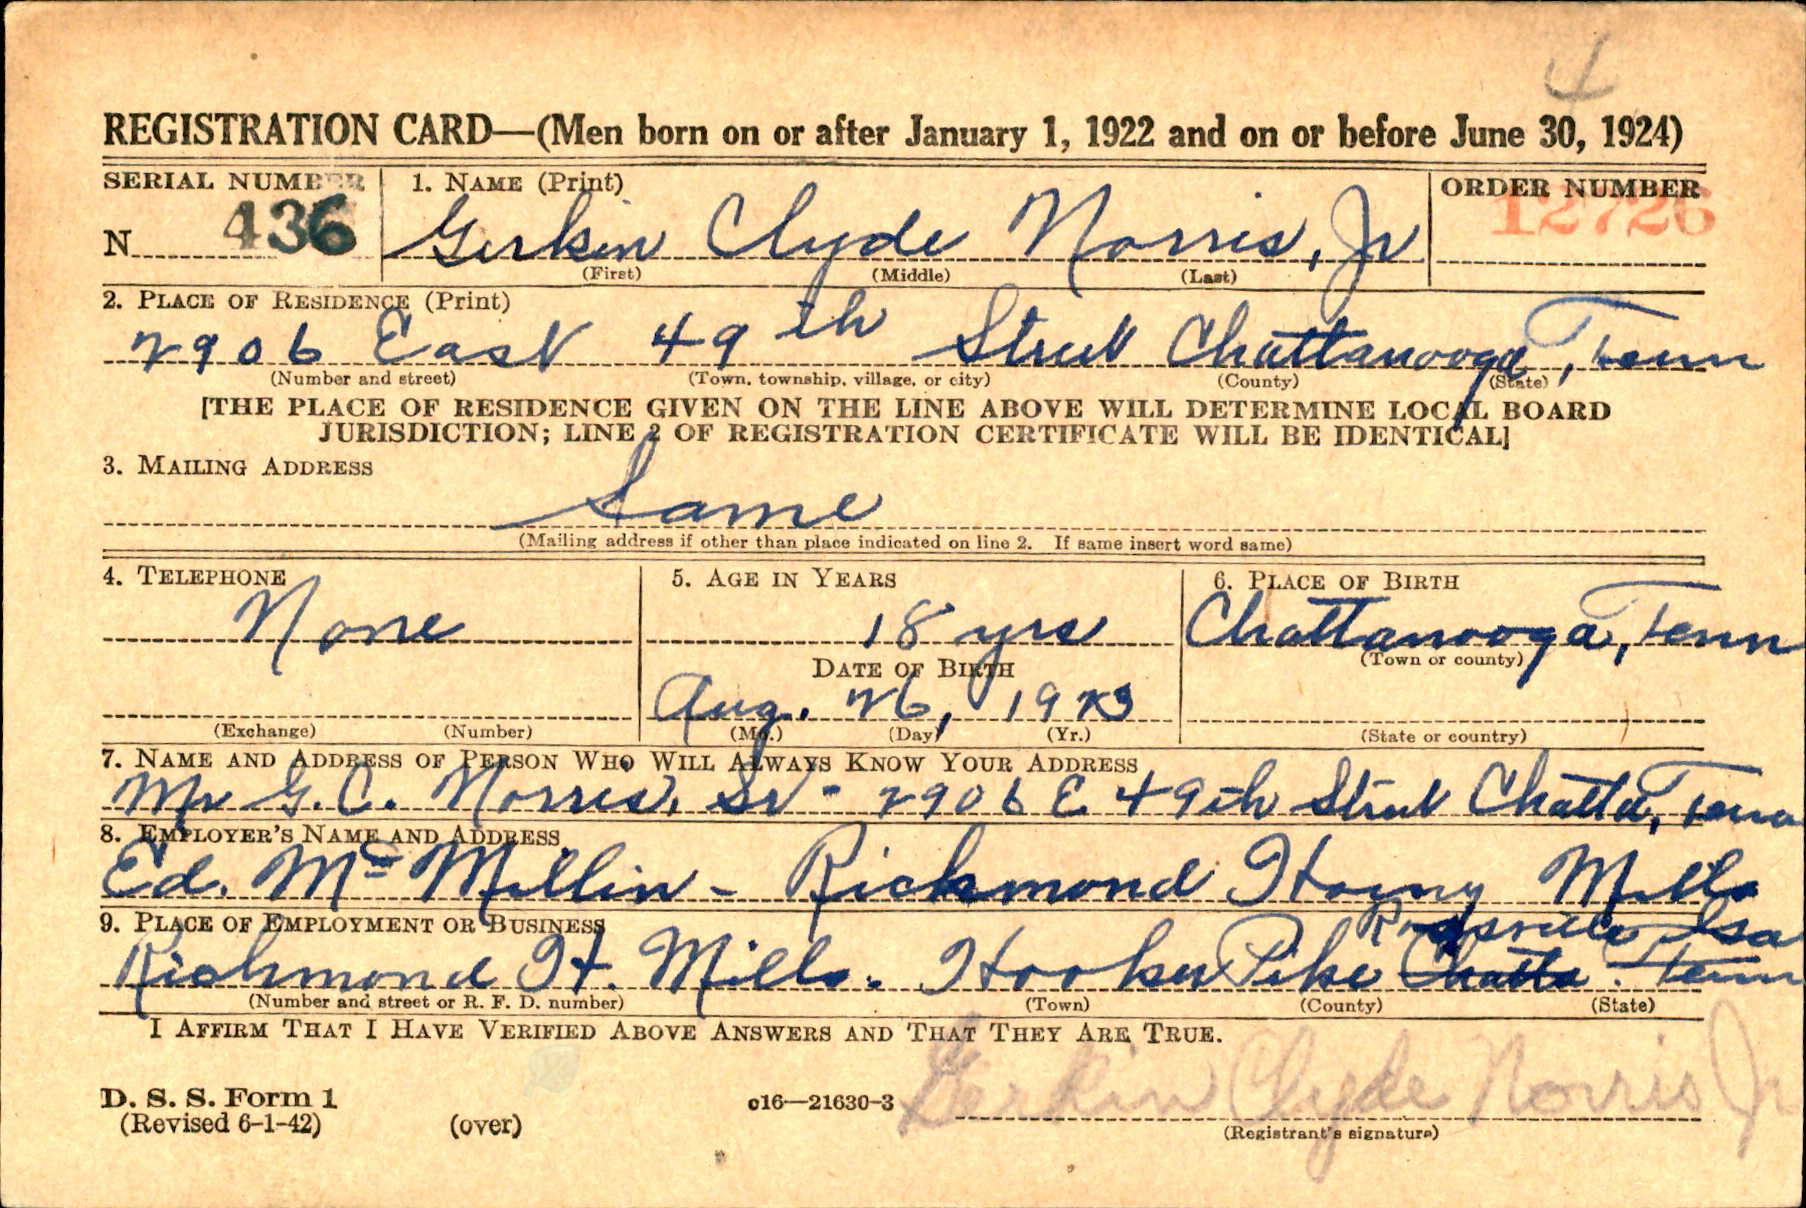 REGISTRATION CARD—(Men born on or after January 1, 1922 and on or before June 30, 1924)
SERIAL NUMBER
1. NAME (Print)
ORDER NUMBER
N 436
Gerkin Clyde Norris, Jr
12726
(First) (Middle) (Last)
2. PLACE OF RESIDENCE (Print)
2906 East 49th Street Chattanooga, Tenn
(Number and street) (Town, township, village, or city) (County) (State)
[THE PLACE OF RESIDENCE GIVEN ON THE LINE ABOVE WILL DETERMINE LOCAL BOARD
JURISDICTION; LINE 2 OF REGISTRATION CERTIFICATE WILL BE IDENTICAL]
3. MAILING ADDRESS
Same
(Mailing address if other than place indicated on line 2. If same insert word same)
4. TELEPHONE
5. AGE IN YEARS
6. PLACE OF BIRTH
None
18 yrs
Chattanooga, Tenn
(Town or county)
DATE OF BIRTH
Aug. 26, 1923
(Exchange) (Number)
(Mo.) (Day) (Yr.)
(State or country)
7. NAME AND ADDRESS OF PERSON WHO WILL ALWAYS KNOW YOUR ADDRESS
Mr G. C. Norris, Sr - 2906 E 49th Street Chatta, Tenn
8. EMPLOYER'S NAME AND ADDRESS
Ed. McMillin - Richmond Hosiery Mills
9. PLACE OF EMPLOYMENT OR BUSINESS
Richmond H. Mills. Hooker Pike Chatta. Tenn
(Number and street or R. F. D. number) (Town) (County) (State)
I AFFIRM THAT I HAVE VERIFIED ABOVE ANSWERS AND THAT THEY ARE TRUE.
D. S. S. Form 1
(Revised 6-1-42) (over)
c16—21630-3
Gerkin Clyde Norris Jr
(Registrant's signature)